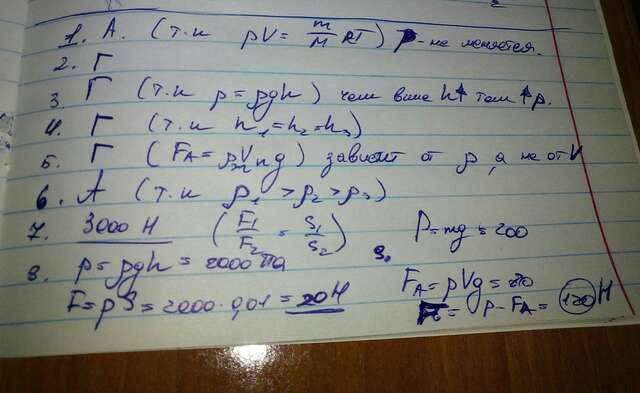 1. А. (т.к pV = m/M RT) p - не меняется.
2. Г
3. Г (т.к p = ρgh) чем выше h↑ том ↑p.
4. Г (т.к h₁=h₂=h₃)
5. Г (FА = ρжVпg) зависит от ρ, а не от V
6. А (т.к ρ₁ > ρ₂ > ρ₃)
7. 3000 Н (F₁/F₂ = S₁/S₂)
8. p = ρgh = 2000 Па
F = pS = 2000 · 0,01 = 20 Н
9. P = mg = 200
FА = ρVg = 80
= P - FА = 120 Н